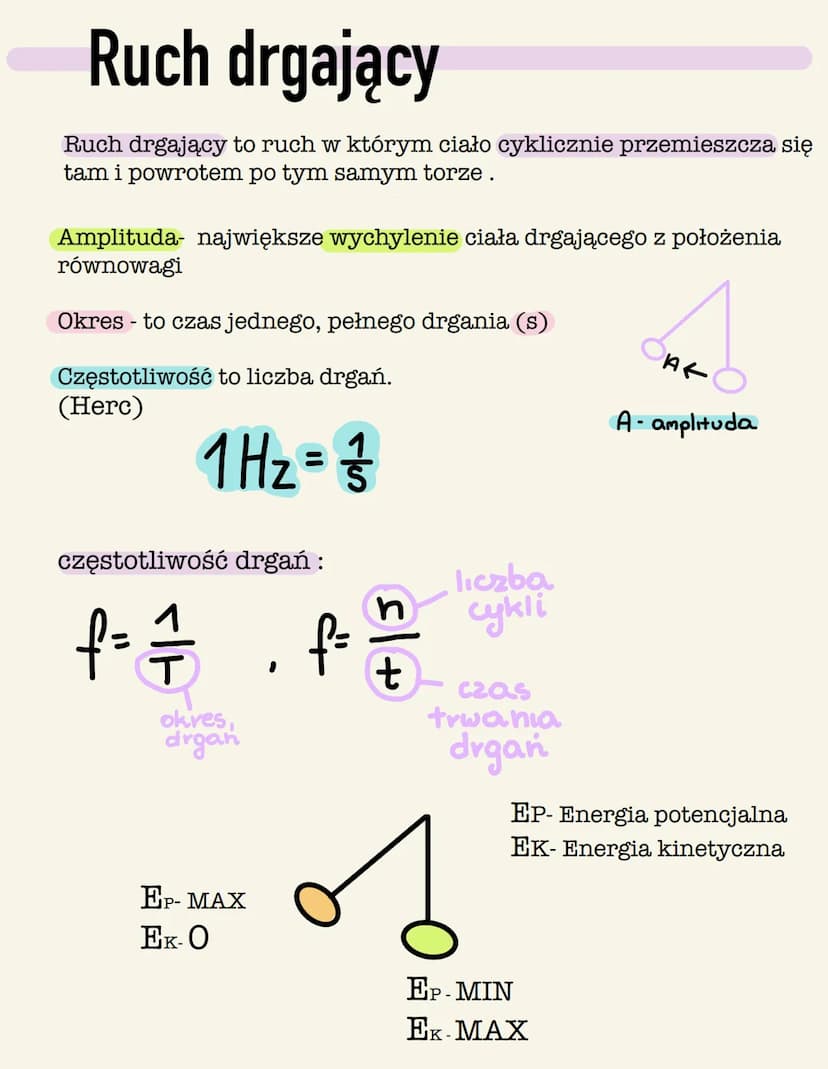 Ruch drgający
Ruch drgający to ruch w którym ciało cyklicznie przemieszcza się
tam i powrotem po tym samym torze .
Amplituda- największe wychylenie ciała drgającego z położenia
równowagi
Okres - to czas jednego, pełnego drgania (s)
Częstotliwość to liczba drgań.
(Herc)
A ←
A - amplituda
1Hz = 1/s
częstotliwość drgań :
f= 1/T , f= n/t
liczba
cykli
okres
drgań
czas
trwania
drgań
EP- Energia potencjalna
EK- Energia kinetyczna
EP- MAX
EK- O
EP - MIN
EK - MAX